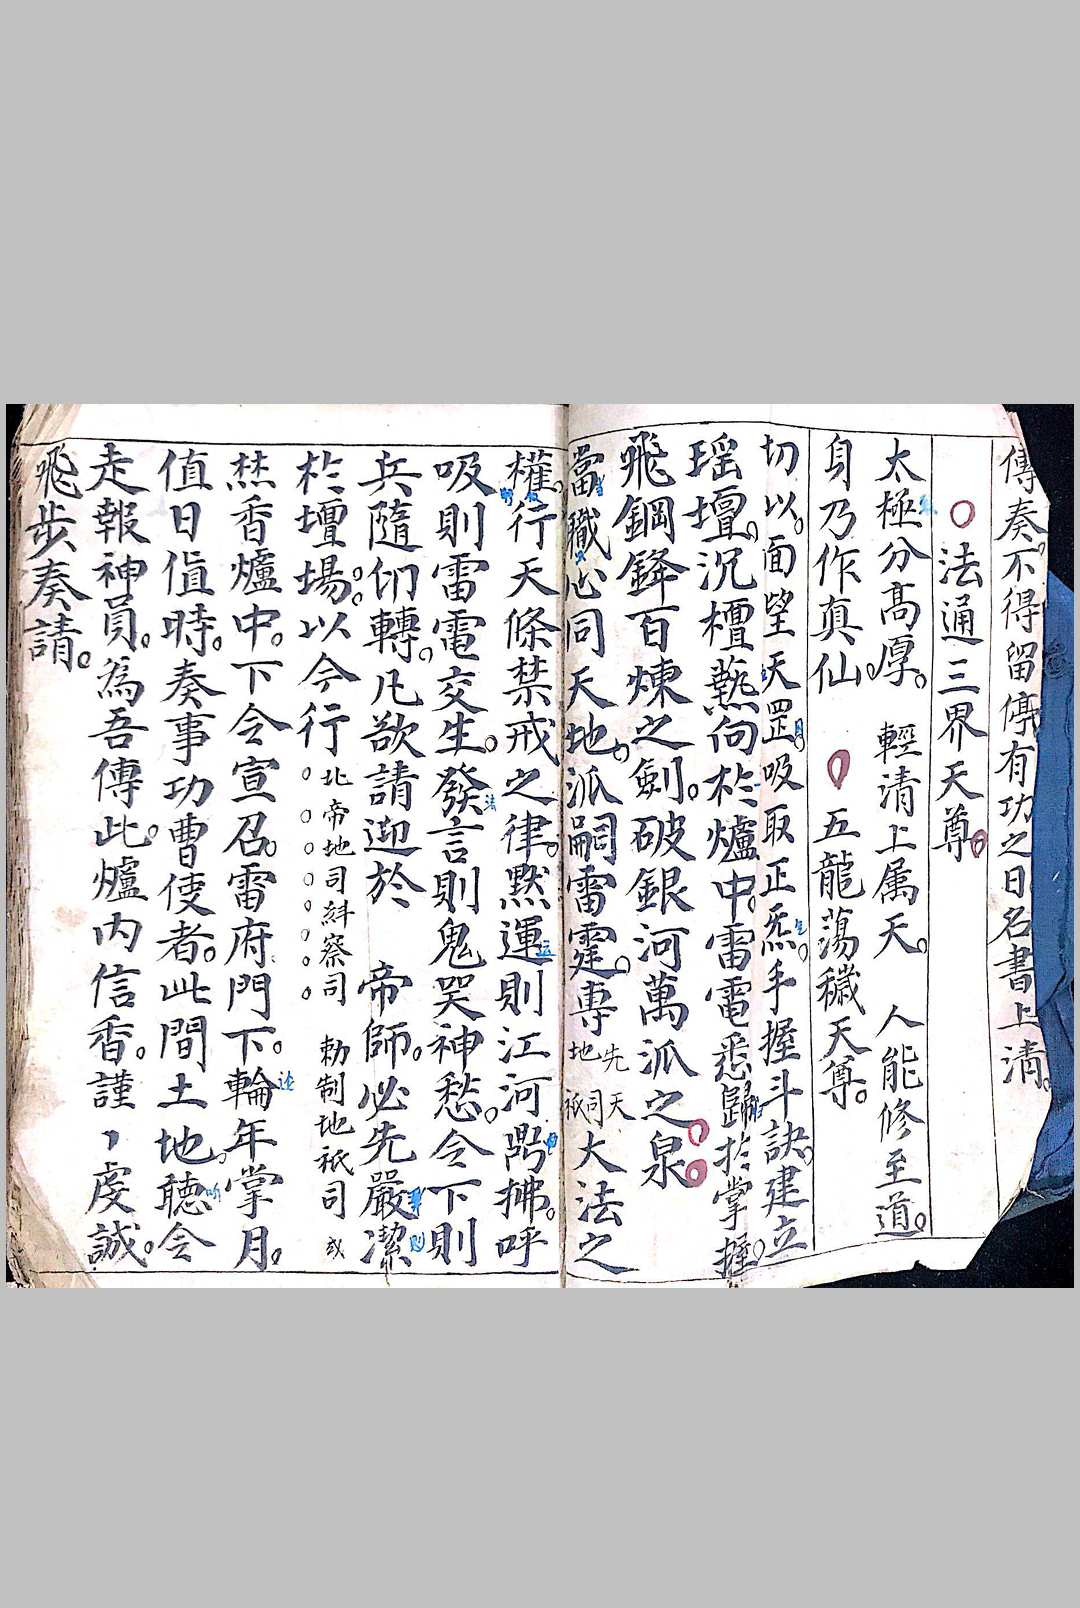 傳奏。不得留停有功之日名書上清。
○法通三界天尊。
太極分高厚。　輕清上属天。　人能修至道。
身乃作真仙。　五龍蕩穢天尊。
切以。面望天罡。吸取正炁。手握斗訣。建立
瑶壇。沉檀爇向於爐中。雷電悉歸於掌握。
飛鋼鋒百煉之劍。破銀河萬派之泉
當職心同天地。派嗣雷霆。專先天地司祇大法之
權。行天條禁戒之律。默運則江河鼎拂。呼
吸則雷電交生。發言則鬼哭神愁。令下則
兵隨印轉。凡欲請迎於　帝師。必先嚴潔
於壇場。以今行北帝地司糾察司　勅制地祇司　或
○○○○○○○○
焚香爐中。下令宣召。雷府門下。輪年掌月。
值日値時。奏事功曹使者。此間土地。聽令
走報神員。為吾傳此。爐内信香。謹丶虔誠。
飛步奏請。